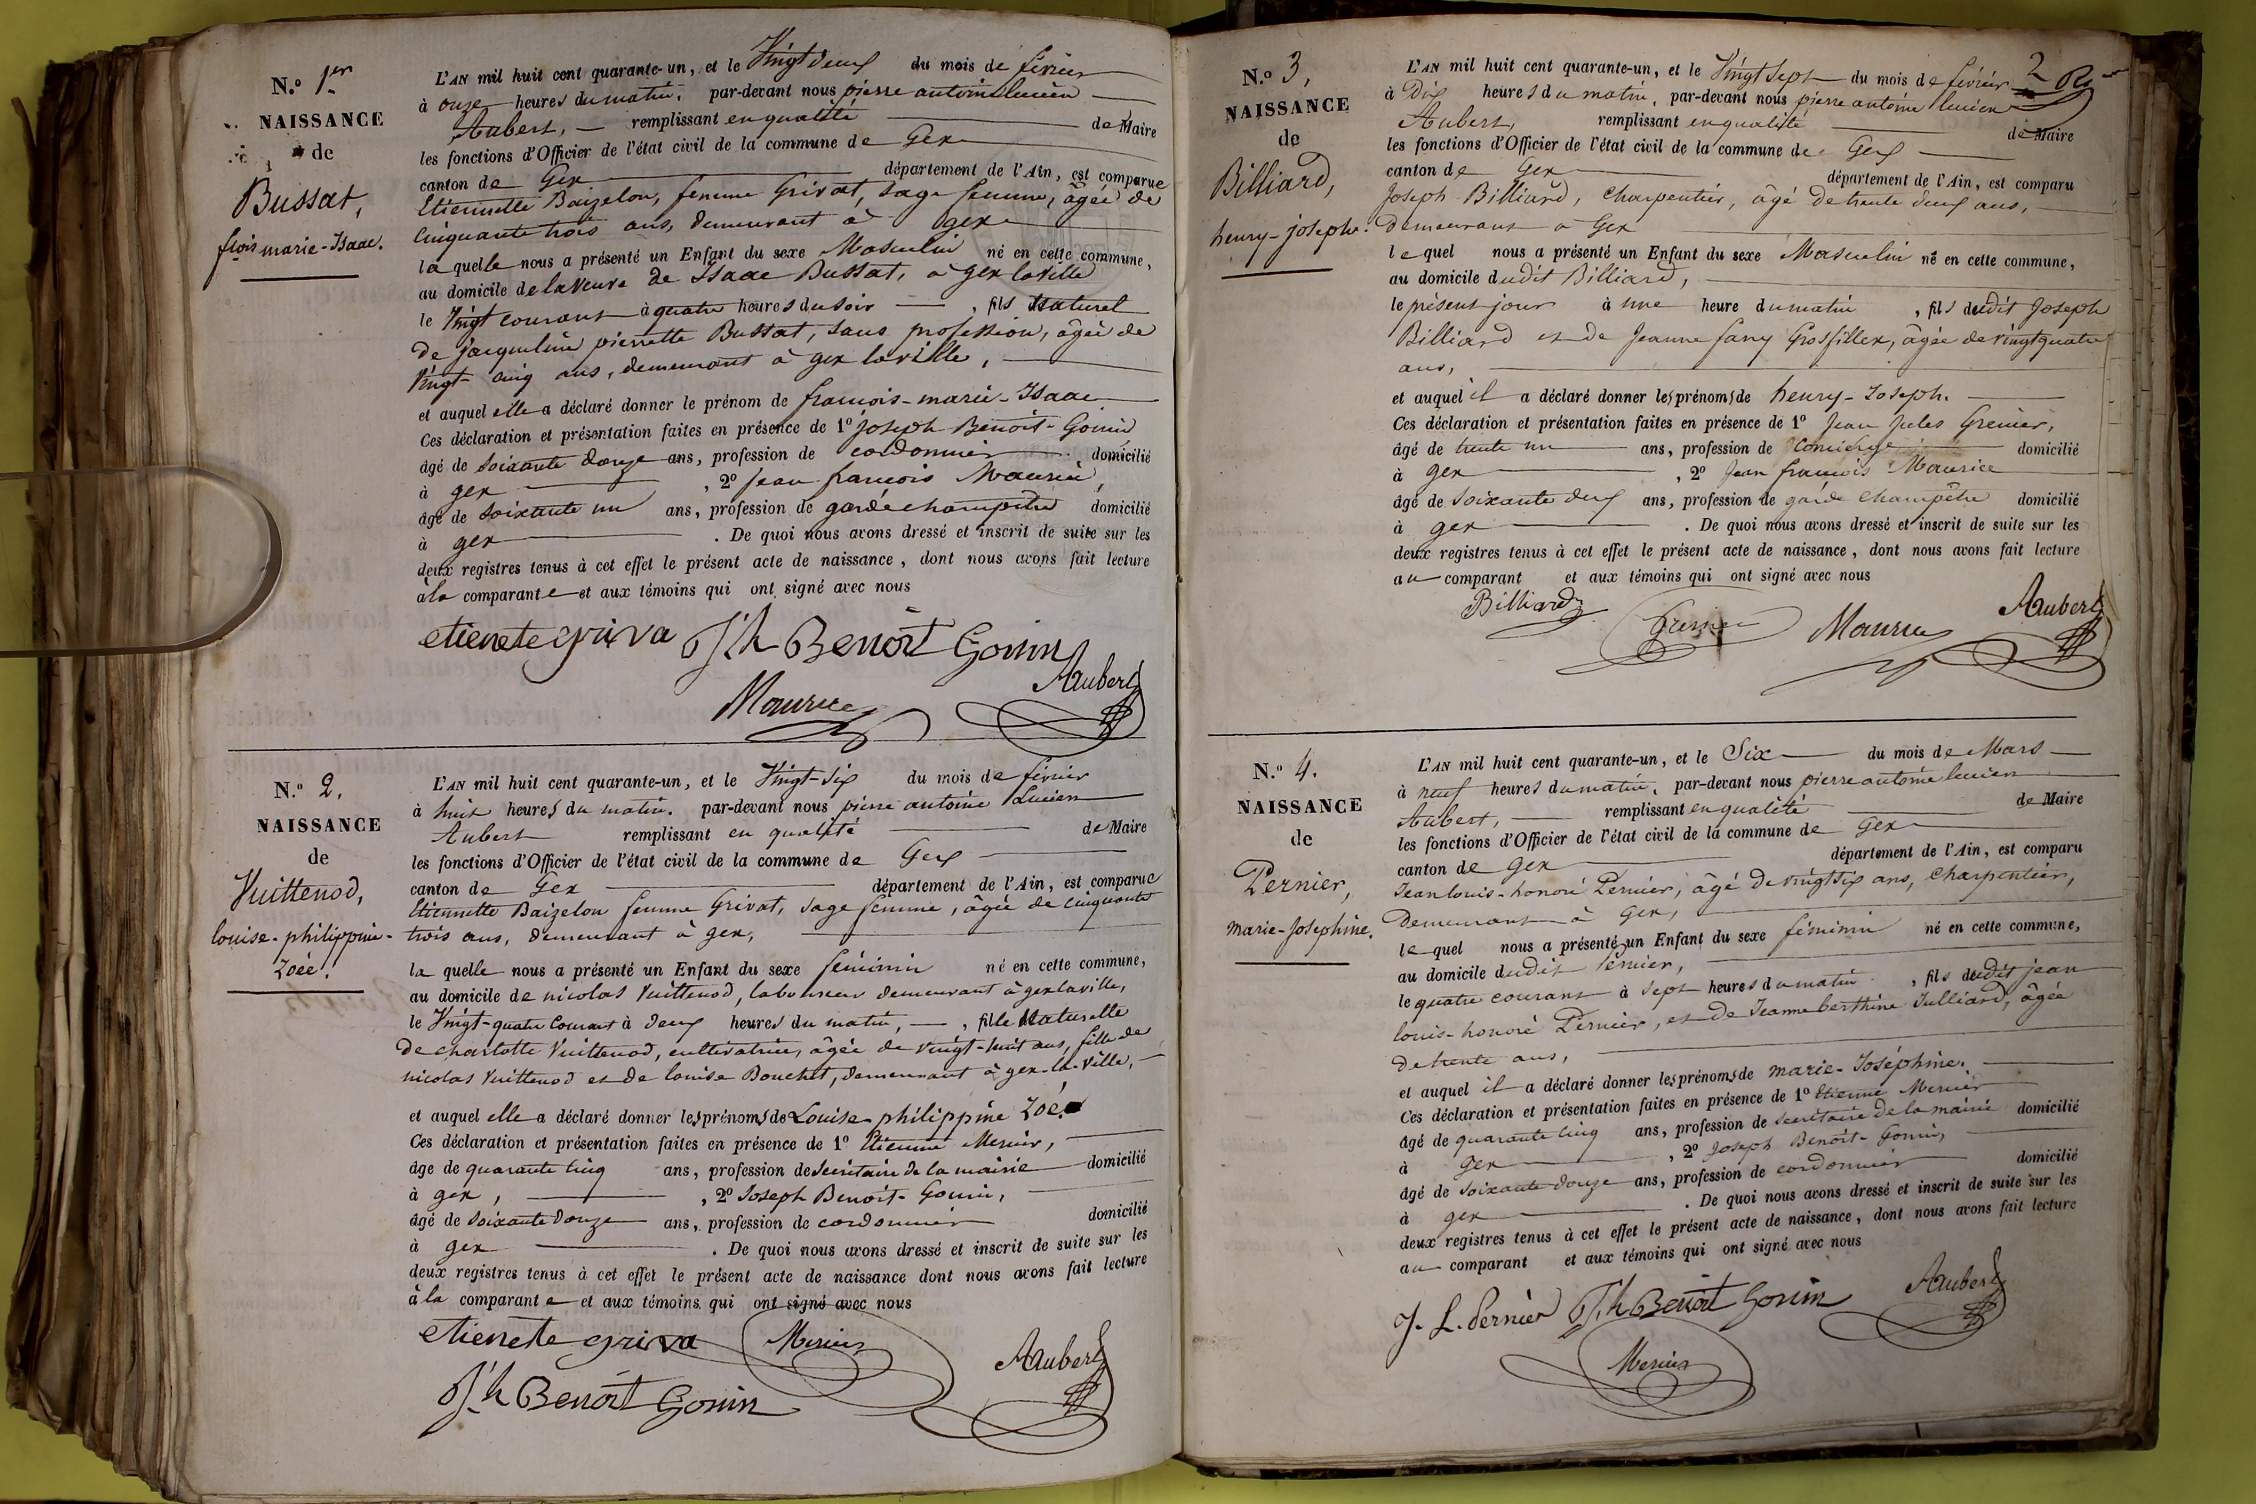 N.º 1er
NAISSANCE
de
Bussat,
fçois marie-Isaac.
L'AN mil huit cent quarante-un, et le Vingt deux du mois de février
à onze heures du matin, par-devant nous pierre antoine lucien
Aubert, remplissant en qualité de Maire
les fonctions d'Officier de l'état civil de la commune de Gex
canton de Gex département de l'Ain, est comparue
Etiennette Baizelon, femme Grivat, sage femme, âgée de
Cinquante trois ans, demeurant à gex
laquelle nous a présenté un Enfant du sexe Masculin né en cette commune,
au domicile de la veuve de Isaac Bussat, à gex laville
le Vingt courant à quatre heures du soir , fils Naturel
de jacqueline pierrette Bussat, sans profession, âgée de
Vingt-cinq ans, demeurant à gex laville,
et auquel elle a déclaré donner le prénom de françois-marie-Isaac
Ces déclaration et présentation faites en présence de 1º joseph Benoit-Gonin
âgé de soixante douze ans, profession de cordonnier domicilié
à gex , 2º jean françois Maurice,
âgé de soixante un ans, profession de garde champêtre domicilié
à gex . De quoi nous avons dressé et inscrit de suite sur les
deux registres tenus à cet effet le présent acte de naissance, dont nous avons fait lecture
à la comparante et aux témoins qui ont signé avec nous
etienete griva Jh Benoit Gonin
Maurice Aubert
N.º 2.
NAISSANCE
de
Vuittenod,
louise-philippine-
Zoée.
L'AN mil huit cent quarante-un, et le Vingt-six du mois de février
à huit heures du matin. par-devant nous pierre antoine Lucien
Aubert remplissant en qualité de Maire
les fonctions d'Officier de l'état civil de la commune de Gex
canton de Gex département de l'Ain, est comparue
Etiennette Baizelon femme Grivat, sage femme, âgée de cinquante
trois ans, demeurant à gex,
la quelle nous a présenté un Enfant du sexe féminin né en cette commune,
au domicile de nicolas Vuittenod, laboureur demeurant à gex laville,
le Vingt-quatre Courant à deux heures du matin, , fille Naturelle
de charlotte Vuittenod, cultivatrice, âgée de vingt-huit ans, fille de
nicolas Vuittenod et de louise Bouchet, demeurant à gex-la-ville,
et auquel elle a déclaré donner les prénoms de Louise-philippine Zoé.
Ces déclaration et présentation faites en présence de 1º Etienne Mercier,
âgé de quarante cinq ans, profession de Secrétaire de la mairie domicilié
à gex, , 2º Joseph Benoit-Gonin,
âgé de soixante douze ans, profession de cordonnier domicilié
à gex . De quoi nous avons dressé et inscrit de suite sur les
deux registres tenus à cet effet le présent acte de naissance dont nous avons fait lecture
à la comparante et aux témoins qui ont signé avec nous
etienete griva Mercier
Jh Benoit Gonin Aubert
2
N.º 3,
NAISSANCE
de
Billiard,
henry-joseph.
L'AN mil huit cent quarante-un, et le Vingt sept du mois de février
à Dix heures du matin, par-devant nous pierre antoine lucien
Aubert, remplissant en qualité de Maire
les fonctions d'Officier de l'état civil de la commune de Gex
canton de Gex département de l'Ain, est comparu
Joseph Billiard, Charpentier, âgé de trente deux ans,
demeurant à Gex
lequel nous a présenté un Enfant du sexe Masculin né en cette commune,
au domicile dudit Billiard,
le présent jour à une heure du matin , fils dudit Joseph
Billiard et de Jeanne fany Grosfillex, âgée de vingt quatre
ans,
et auquel il a déclaré donner les prénoms de henry-Joseph.
Ces déclaration et présentation faites en présence de 1º Jean Jules Grenier,
âgé de trente un ans, profession de Concierge domicilié
à gex , 2º Jean françois Maurice
âgé de soixante deux ans, profession de garde champêtre domicilié
à gex . De quoi nous avons dressé et inscrit de suite sur les
deux registres tenus à cet effet le présent acte de naissance, dont nous avons fait lecture
au comparant et aux témoins qui ont signé avec nous
Billiard Grenier Maurice Aubert
N.º 4.
NAISSANCE
de
Pernier,
marie-Josephine.
L'AN mil huit cent quarante-un, et le Six du mois de Mars
à neuf heures du matin, par-devant nous pierre antoine lucien
Aubert, remplissant en qualité de Maire
les fonctions d'Officier de l'état civil de la commune de Gex
canton de gex département de l'Ain, est comparu
Jean louis-honoré Pernier, âgé de vingt six ans, Charpentier,
Demeurant à Gex,
lequel nous a présenté un Enfant du sexe féminin né en cette commune,
au domicile dudit Pernier,
le quatre courant à sept heures du matin , fils dudit jean
louis-honoré Pernier, et de Jeanne berthine Julliard, âgée
de trente ans,
et auquel il a déclaré donner les prénoms de marie-Joséphine.
Ces déclaration et présentation faites en présence de 1º Etienne Mercier
âgé de quarante cinq ans, profession de secrétaire de la mairie domicilié
à gex , 2º Joseph Benoit-Gonin,
âgé de soixante douze ans, profession de cordonnier domicilié
à gex . De quoi nous avons dressé et inscrit de suite sur les
deux registres tenus à cet effet le présent acte de naissance, dont nous avons fait lecture
au comparant et aux témoins qui ont signé avec nous
J. L. Pernier Jh Benoit Gonin Aubert
Mercier